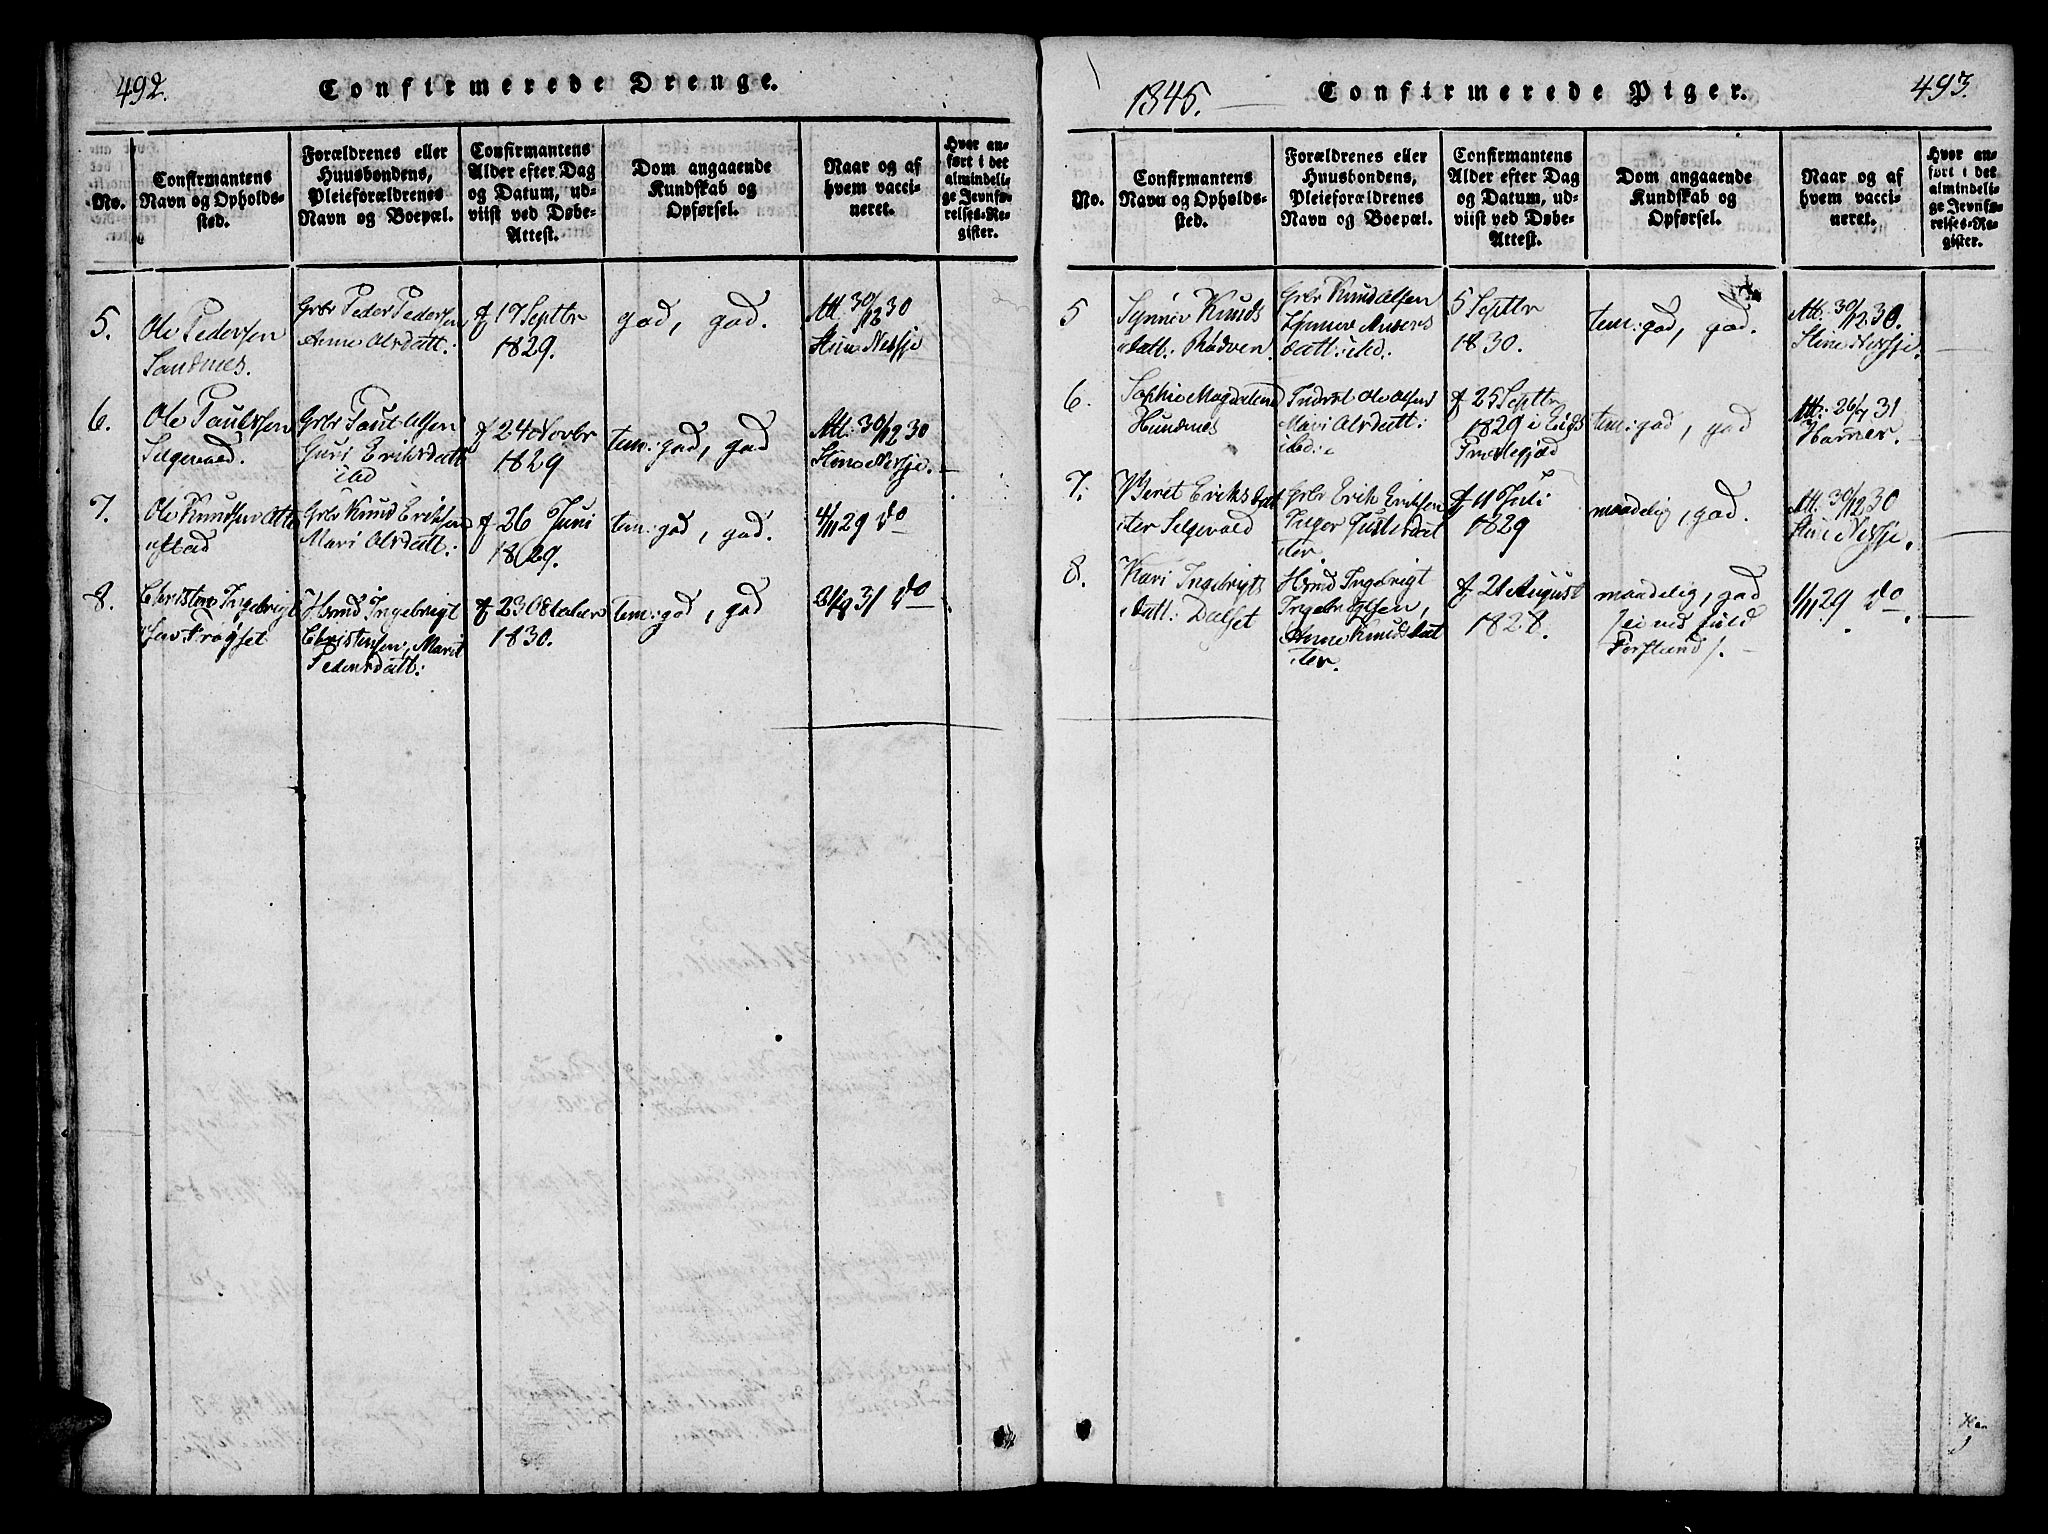 492.
Confirmerede Drenge.
No.
Confirmantens
Navn og Opholds-
sted.
Forældrenes eller
Huusbondens,
Pleieforældrenes
Navn og Boepæl.
Confirmantens
Alder efter Dag
og Datum, ud-
viist ved Døbe-
Attest.
Dom angaaende
Kundskab og
Opførsel.
Naar og af
hvem vacci-
neret.
Hvor an-
ført i det
almindeli-
ge Jevnfø-
relses-Re-
gister.
5.
Ole Pedersen
Sandnes.
Grbr Peder Pedersen
Anne Olsdatt:
f 17 Septbr
1829.
god, god.
Att. 30/12 30
Stine Nessje
6.
Ole Paulssen
Selgevold.
Grbr Paul Olsen
Guri Eriksdatt
ibd
f 24 Novbr
1829
tem: god, god
Att: 30/12 30
Stine Nessje.
7.
Ole Knudsen
Grbr Knud Eriksen
Mari Olsdatt:
f 26 Juni
1829.
tem: god, god.
4/11 29 do
8.
Christen Ingebrigt
sen Frøyset
Hsmd Ingebrigt
Christensen, Marit
Pedersdatt:
f 23 October
1830.
tem: god, god
31 do
1845.
Confirmerede Piger.
493.
No.
Confirmantens
Navn og Opholds-
sted.
Forældrenes eller
Huusbondens,
Pleieforældrenes
Navn og Boepæl.
Confirmantens
Alder efter Dag
og Datum, ud-
viist ved Døbe-
Attest.
Dom angaaende
Kundskab og
Opførsel.
Naar og af
hvem vacci-
neret.
Hvor an-
ført i det
almindeli-
ge Jevnfø-
relses-Re-
gister.
5
Synnøv Knuds
datt: Rødven.
Grbr Knud Olsen
Synnøve Anders
datt: ibd.
5 Septbr
1830.
tem: god, god.
Att: 30/12 30.
Stine Nessje.
6.
Sophie Magdalena
Hundnes
Inderst Ole Olsen
Mari Olsdatt:
ibd:
f 25 Septbr
1829 i Eids
Præstegjæld
tem: god, god
Att: 26/7 31
Hammer.
7.
Beret Eriksdat
ter Selgevold
Grbr Erik Eriksen
Inger Justsdat
ter.
f 11 Juli
1829
maadelig, god.
Att. 30/12 30
Stine Nessje.
8.
Kari Ingebrigts
datt: Dalset
Hsmd Ingebrigt
Ingebrigtsen,
Anne Knudsdat
ter.
f 21 August
1828.
maadelig, god
/ei ved fuld
Forstand/.
1/11 29 do